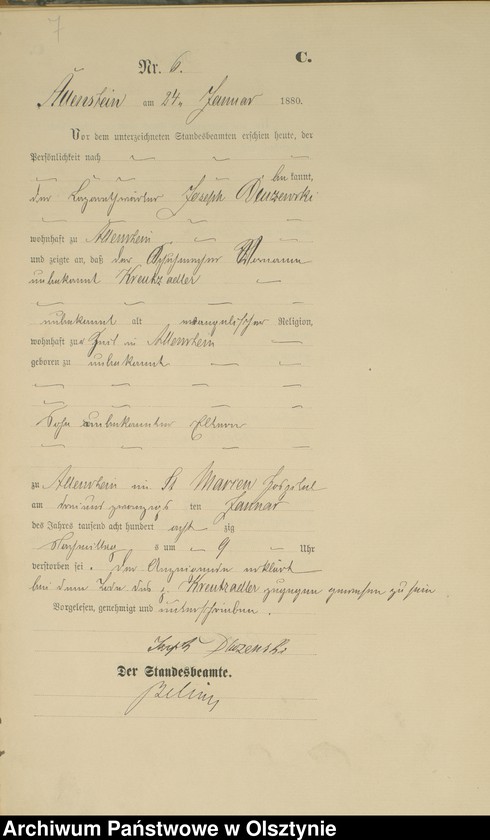 7
C.
Nr. 6.
Allenstein am 24. Januar 1880.
Vor dem unterzeichneten Standesbeamten erschien heute, der
Persönlichkeit nach
bekannt,
der Lazarethwärter Joseph
wohnhaft zu Allenstein
und zeigte an, daß der Schuhmacher Vorname
unbekannt Kreutzadler
unbekannt alt evangelischer Religion,
wohnhaft zur Zeit in Allenstein
geboren zu unbekannt
Sohn unbekannter Eltern
zu Allenstein im St Marien Hospital
am dreiundzwanzigsten Januar
des Jahres tausend acht hundert achtzig
Nachmittags um 9 Uhr
verstorben sei. Der Anzeigende erklärt
bei dem Tode des p. Kreutzadler zugegen gewesen zu sein
Vorgelesen, genehmigt und unterschrieben.
Joseph
Der Standesbeamte.
Archiwum Państwowe w Olsztynie